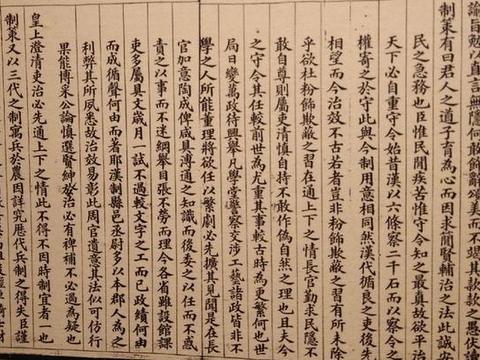 諭旨勉以直言無隱何敢飾辭頌美而不竭其款款之愚伏讀
制策有曰君人之道子育為心而因求簡賢輔治之法此誠安
民之急務也臣惟民間疾苦惟守令知之最真故欲平治
天下必自重守令始昔漢以六條察二千石而以察令之
權寄之於守此與今制用意相同然漢代循良之吏後先
相望而今治效不古若者豈非粉飾欺蔽之習有所未除
乎欲杜粉飾欺蔽之習在通上下之情長官勤求民隱不
敢自尊則屬吏清慎自持不敢作偽自然之理也且夫今
之守令其任較前世為尤重其事較古時為更繁何也世
局日變萬政待興舉凡學堂警察交涉工藝諸政皆非不
學之人所能董理將欲任以繁劇必先擴其見聞是在長
官加意陶成俾咸具溥通之知識而後委之以任而不惑
責之以事而不迷綱舉目張不勞而理今各省雖設館課
吏多屬具文歲月一試不過較文字之工而已政績何由
而成循聲何由而著耶漢制縣邑丞尉多以本郡人為之
利弊其所夙悉故治效易彰此周官遺意其法似可仿行
果能博采公論慎選賢紳於治必有裨補不必過為疑也
皇上澄清吏治必先通上下之情此不得不因時制宜者一也
制策又以三代之制寓兵於農因詳究歷代兵制之得失臣謹